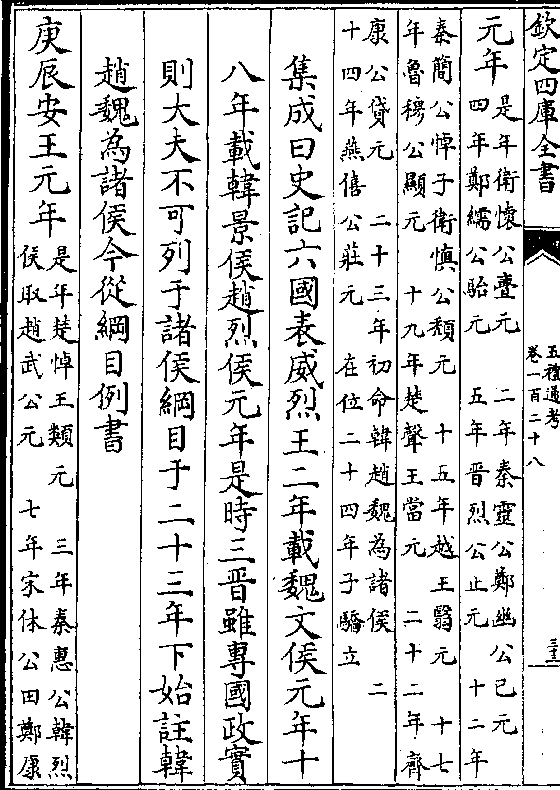 欽定四庫全書
五禮通考
卷一百二十八
三十三
元年是年衛懷公亹元　二年秦靈公鄭幽公已元
四年鄭繻公駘元　五年晉烈公止元　十二年
秦簡公悼子衛慎公頹元　十五年越王翳元　十七
年魯穆公顯元　十九年楚聲王當元　二十二年齊
康公貸元　二十三年初命韓趙魏為諸侯　二
十四年燕僖公莊元　在位二十四年子驕立
集成曰史記六國表威烈王二年載魏文侯元年十
八年載韓景侯趙烈侯元年是時三晉雖專國政實
則大夫不可列于諸侯綱目于二十三年下始註韓
趙魏為諸侯今從綱目例書
庚辰安王元年是年楚悼王類元　三年秦惠公韓烈
侯取趙武公元　七年宋休公田鄭康